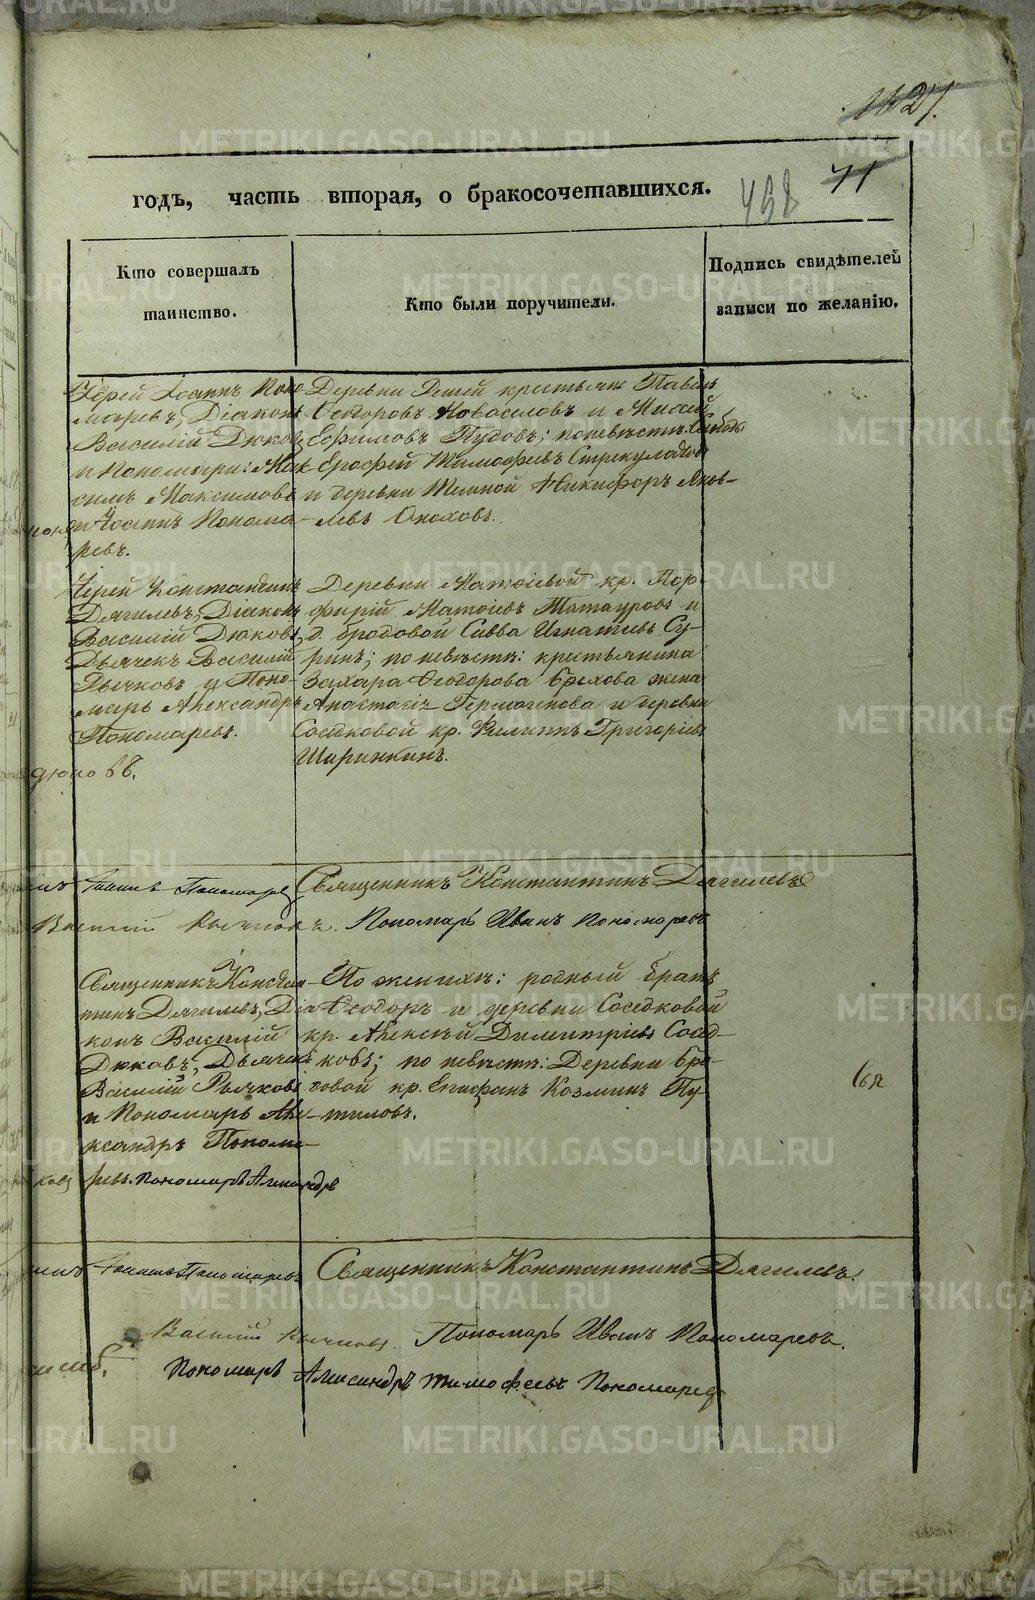 1627.
годъ, часть вторая, о бракосочетавшихся.
458 71
Кто совершалъ таинство.
Кто были поручители.
Подпись свидѣтелей записи по желанію.
Іерей Іоаннъ Поно-
маревъ, Діаконъ
Василій Дюковъ,
и Пономари: Мак-
симъ Максимовъ
и Іоаннъ Понома-
ревъ.
Деревни крестьяне Павелъ
Ѳеодоровъ Новоселовъ и
Ефимовъ Пудовъ; по невѣстѣ:
Ерофей Тимофеевъ
и деревни Темной Никифоръ Яков-
левъ
Іерей Константинъ
Дягилевъ, Діаконъ
Василій Дюковъ,
Дьячекъ Василій
Рычковъ и Поно-
марь Александръ
Пономаревъ.
Деревни Матвіевой кр. Пор-
фирій Матвіевъ Татауровъ и
д. бродовой Савва Игнатьевъ Су-
ринъ; по невѣстѣ: крестьянина
Захара Ѳеодорова жена
Анастасія Гермогенова и деревни
Сосѣдковой кр. Филиппъ Григорьевъ
Ширинкинъ.
дюковъ.
Іоаннъ Пономаревъ Священникъ Константинъ Дягилевъ
Василій Рычковъ. Пономарь Иванъ Пономаревъ
Священникъ Констан-
тинъ Дягилевъ, Діа-
конъ Василій
Дюковъ, Дьячекъ
Василій Рычковъ
и Пономарь Але-
ксандръ Понома-
ревъ. Пономарь Александръ
По женихѣ: родный братъ
Ѳеодоръ и деревни Сосѣдковой
кр. Алексѣй Димитріевъ Сосѣд-
ковъ; по невѣстѣ: Деревни бро-
довой кр. Епифанъ Козминъ Пу-
тиловъ.
Іоаннъ Пономаревъ Священникъ Константинъ Дягилевъ.
Василій Рычковъ. Пономарь Иванъ Пономаревъ.
Пономарь Александръ Тимофеевъ Пономаревъ
METRIKI.GASO-URAL.RU